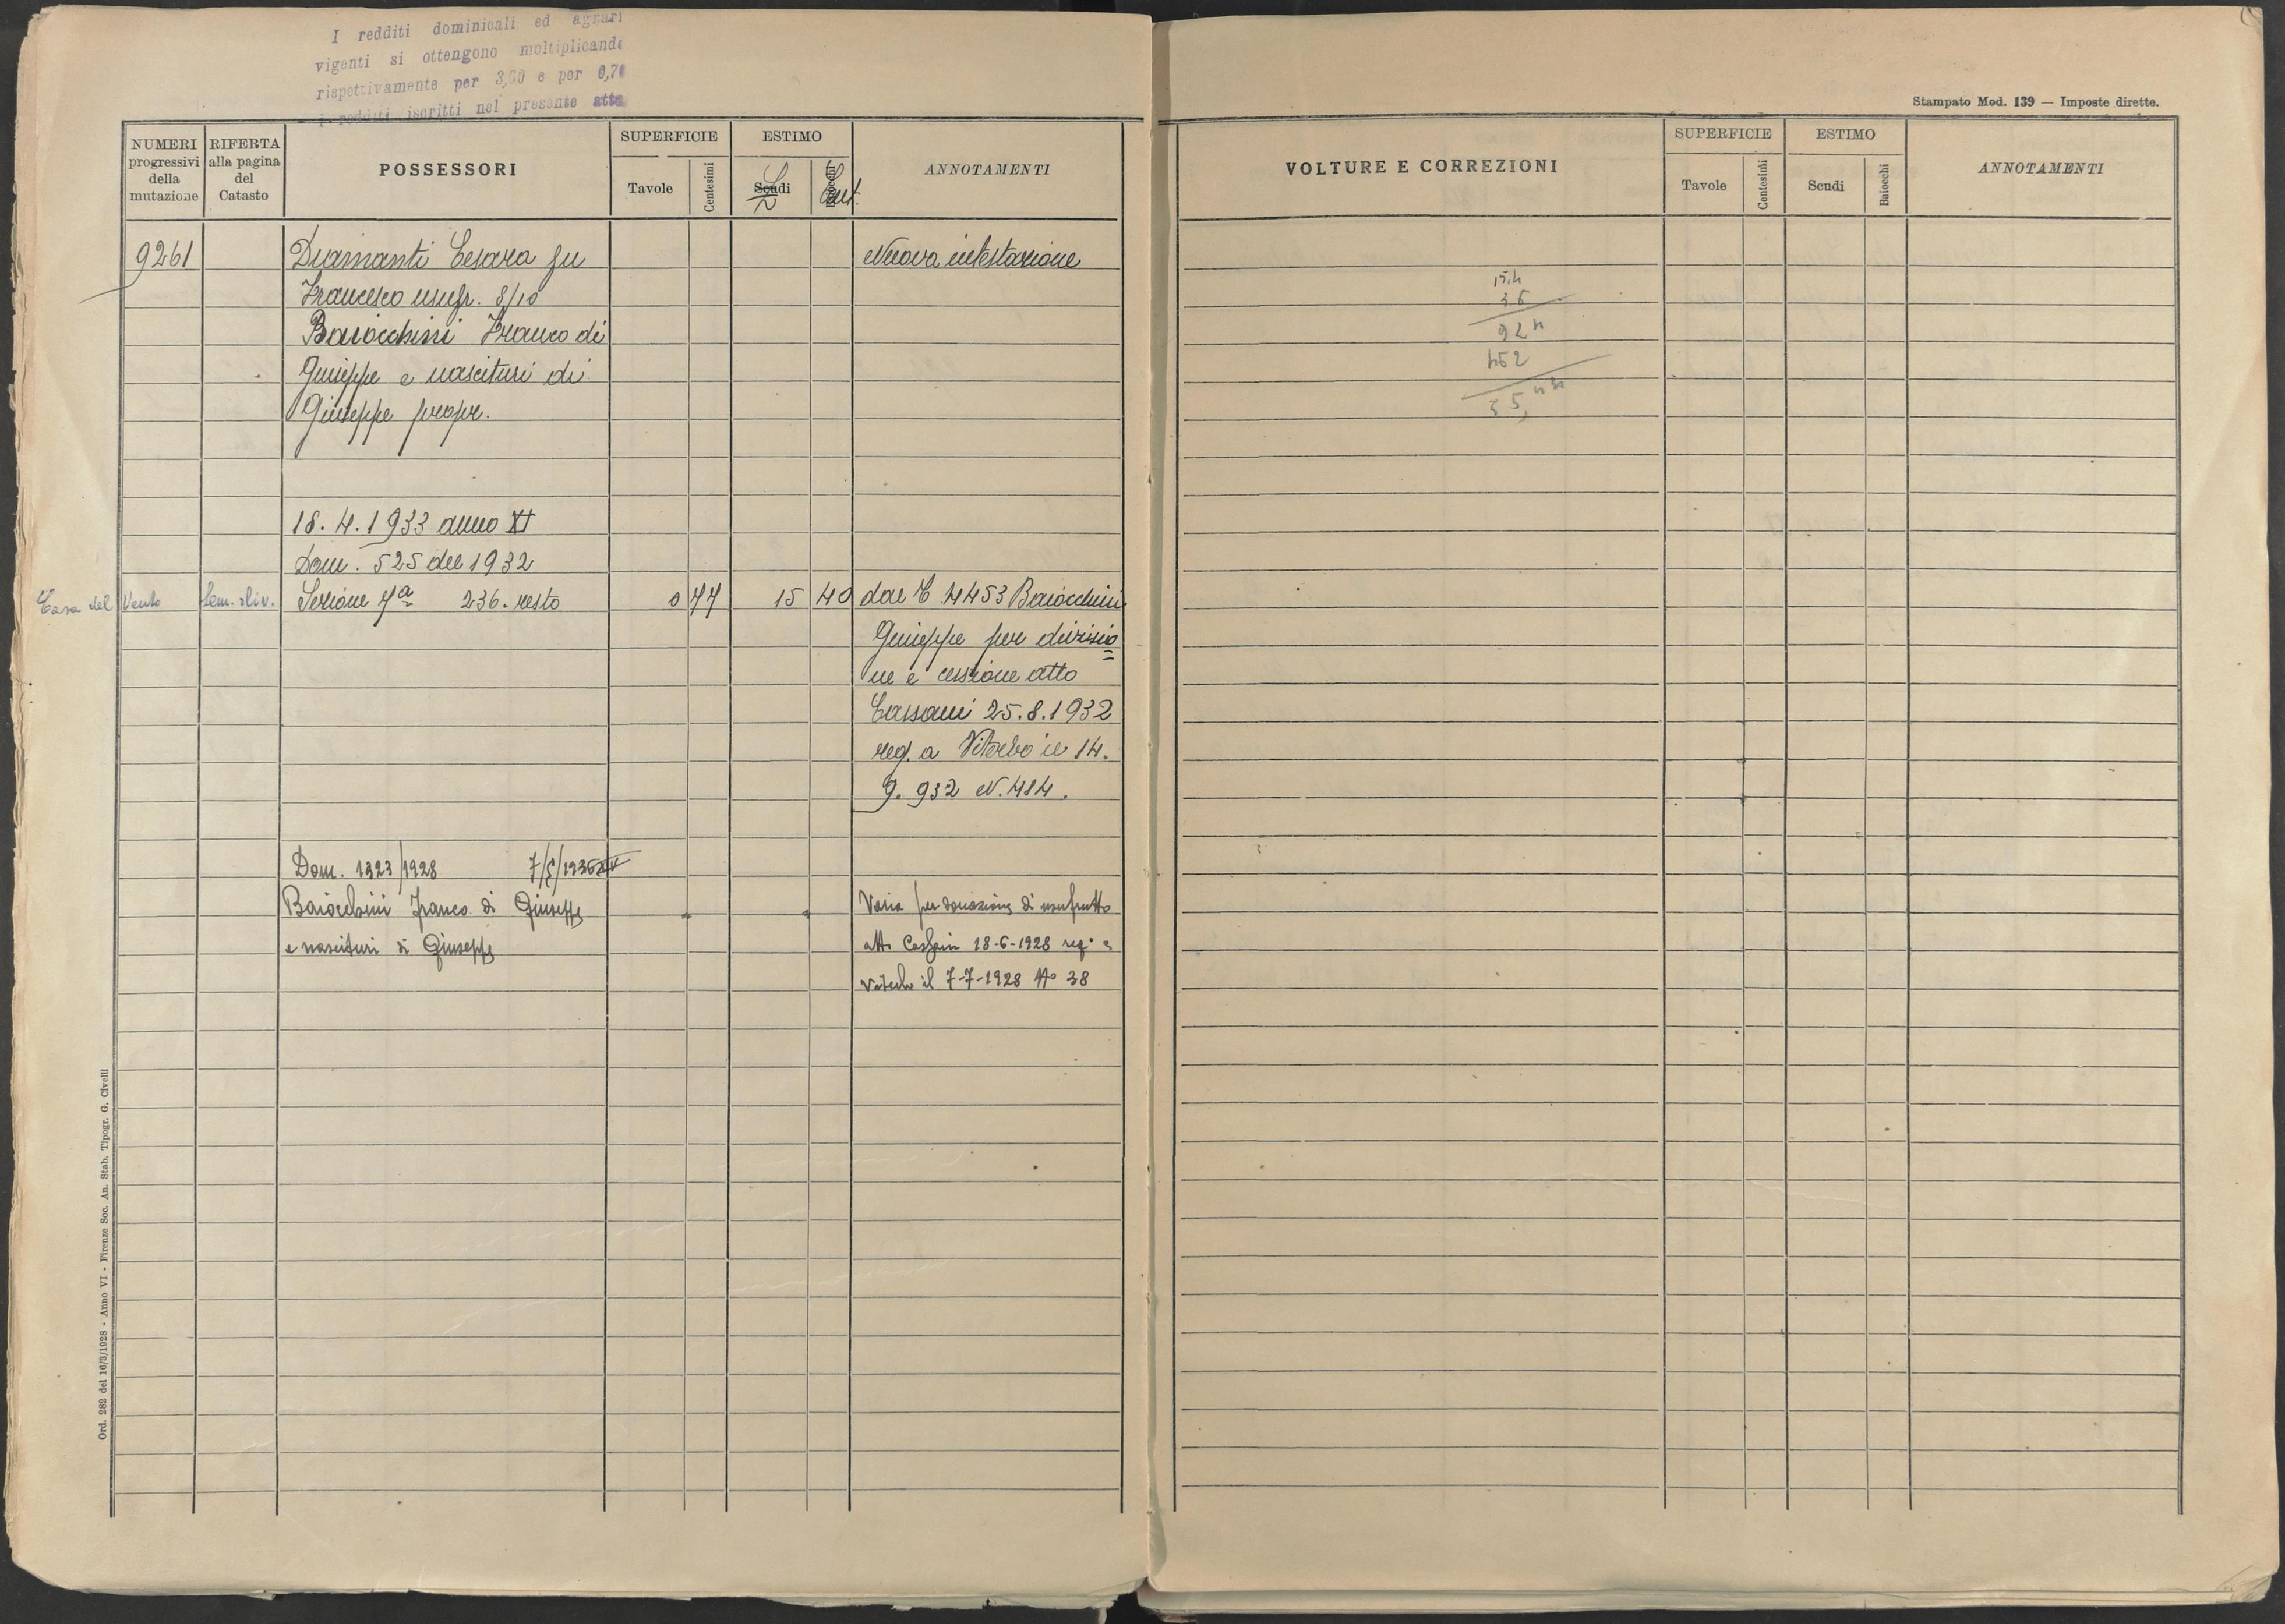 I redditi dominicali ed agrari
vigenti si ottengono moltiplicando
rispettivamente per 3,60 e per 0,70
i redditi iscritti nel presente atto
NUMERI
progressivi
della
mutazione
RIFERTA
alla pagina
del
Catasto
POSSESSORI
SUPERFICIE
Tavole
Centesimi
ESTIMO
Scudi
Baiocchi
L
Cent.
ANNOTAMENTI
9261
Diamanti Cesara fu
Nuova intestazione
Francesco usufr. 8/10
Baiocchini Franco di
Giuseppe e nascituri di
Giuseppe propr.
18.4.1933 anno XI
Dom. 525 del 1932
Casa del Vento Sem. oliv. Sezione 7ª 236. resto 0 77 15 40 dal C 4453 Baiocchini
Giuseppe per divisio
ne e cessione atto
Cassani 25.8.1932
reg. a Viterbo il 14.
9. 932 N. 484.
Dom. 1323/1928
Baiocchini Franco di Giuseppe
Varia per donazione di usufrutto
e nascituri di Giuseppe
atto Cassani 18-6-1928 reg. a
Viterbo il 7-7-1928 Nº 38
Ord. 282 del 16/3/1928 - Anno VI - Firenze Soc. An. Stab. Tipogr. G. Civelli
Stampato Mod. 139 — Imposte dirette.
VOLTURE E CORREZIONI
SUPERFICIE
Tavole
Centesimi
ESTIMO
Scudi
Baiocchi
ANNOTAMENTI
15,4
3.6
924
462
55,44